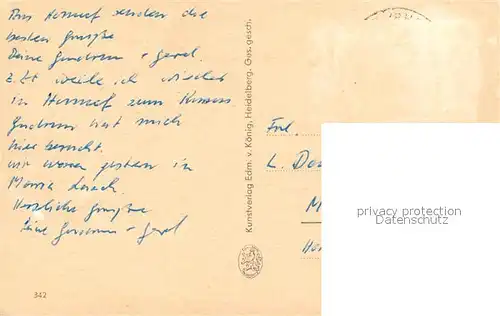 Aus Hennef senden die
besten Grüße
Deine Gundrun + Gerd.
z. Zt weile ich wieder
in Hennef zum
Gundrun hat mich
hier besucht.
wir waren gestern in
Maria Laach.
Herzliche Grüße
Deine Gundrun + Gerd
342
Kunstverlag Edm. v. König, Heidelberg. Ges. gesch.
Frl.
L.
M
privacy protection
Datenschutz